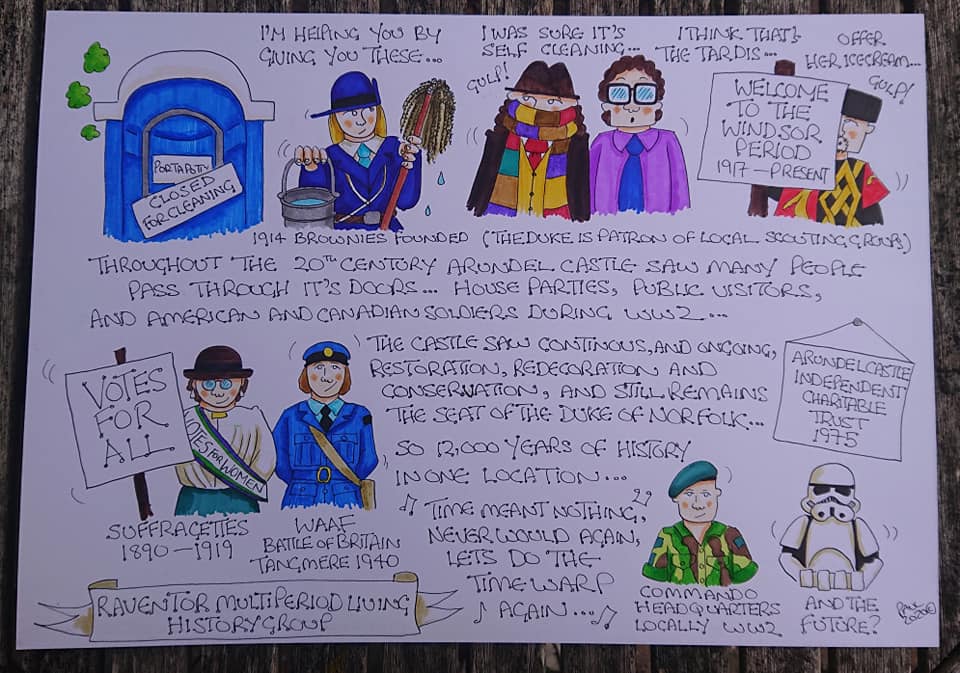 I'M HELPING YOU BY
GIVING YOU THESE...
I WAS SURE IT'S
SELF CLEANING...
GULP!
I THINK THAT'S
THE TARDIS...
OFFER
HER ICECREAM...
GULP!
PORTAPOTTY
CLOSED
FOR CLEANING
WELCOME
TO THE
WINDSOR
PERIOD
1917 - PRESENT
1914 BROWNIES FOUNDED (THE DUKE IS PATRON OF LOCAL SCOUTING GROUPS)
THROUGHOUT THE 20TH CENTURY ARUNDEL CASTLE SAW MANY PEOPLE
PASS THROUGH IT'S DOORS... HOUSE PARTIES, PUBLIC VISITORS,
AND AMERICAN AND CANADIAN SOLDIERS DURING WW2...
VOTES
FOR
ALL
VOTES FOR WOMEN
SUFFRAGETTES
1890 - 1919
WAAF
BATTLE OF BRITAIN
TANGMERE 1940
THE CASTLE SAW CONTINOUS, AND ONGOING,
RESTORATION, REDECORATION AND
CONSERVATION, AND STILL REMAINS
THE SEAT OF THE DUKE OF NORFOLK...
SO 12,000 YEARS OF HISTORY
IN ONE LOCATION...
TIME MEANT NOTHING,
NEVER WOULD AGAIN,
LETS DO THE
TIME WARP
AGAIN...
ARUNDEL CASTLE
INDEPENDENT
CHARITABLE
TRUST
1975
COMMANDO
HEADQUARTERS
LOCALLY WW2
AND THE
FUTURE?
RAVENTOR MULTIPERIOD LIVING
HISTORY GROUP